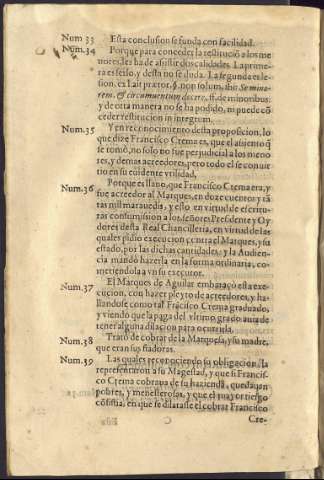 Num 33 Esta conclusion se funda con facilidad.
Num.34 Porque para conceder la restituciō a los me-
nores, les ha de asistir dos calidades. La prime-
ra es esso, y desta no se duda. La segunda es le-
sion, ex l. ait prætor, §. non solum, ibi: Se mino-
rem, & circumuentum docere, ff. de minoribus.
y de otra manera no se ha podido, ni puede cō
ceder restitucion in integrum.
Num.35 Y en reconocimiento desta proposicion, lo
que dize Francisco Crema es, que el assiento q̄
se tomò, no solo no fue perjudicial a los meno-
res, y demas acreedores, pero todo el se conuir
tio en su euidente vtilidad,
Num.36 Porque es llano, que Francisco Crema era, y
fue acreedor al Marques, en doze cuentos y tā
tas mil marauedis, y esto en virtud de escritu-
ras con sumission a los señores Presidente y Oy
dores desta Real Chancilleria, en virtud de las
quales pidio execucion contra el Marques, y su
estado, por las dichas cantidades: y la Audien-
cia mandò hazerla en la forma ordinaria, co-
metiendola a vn su executor.
Num.37 El Marques de Aguilar embaraçò esta exe-
cucion, con hazer pleyto de acreedores, y ha-
llandose como tal Frācisco Crema graduado,
y viendo que la paga del vltimo grado auia de
tener alguna dilacion para ocurrirla.
Num.38 Tratò de cobrar de la Marquesa, y su madre,
que eran sus fiadoras.
Num.39 Las quales reconociendo su obligacion, la
representaron a su Magestad, y que si Francis-
co Crema cobraua de su hazienda, quedauan
pobres, y menesterosas, y que el mayor riesgo
cōsistia, en que se dilatasse el cobrar Francisco
C Cre-